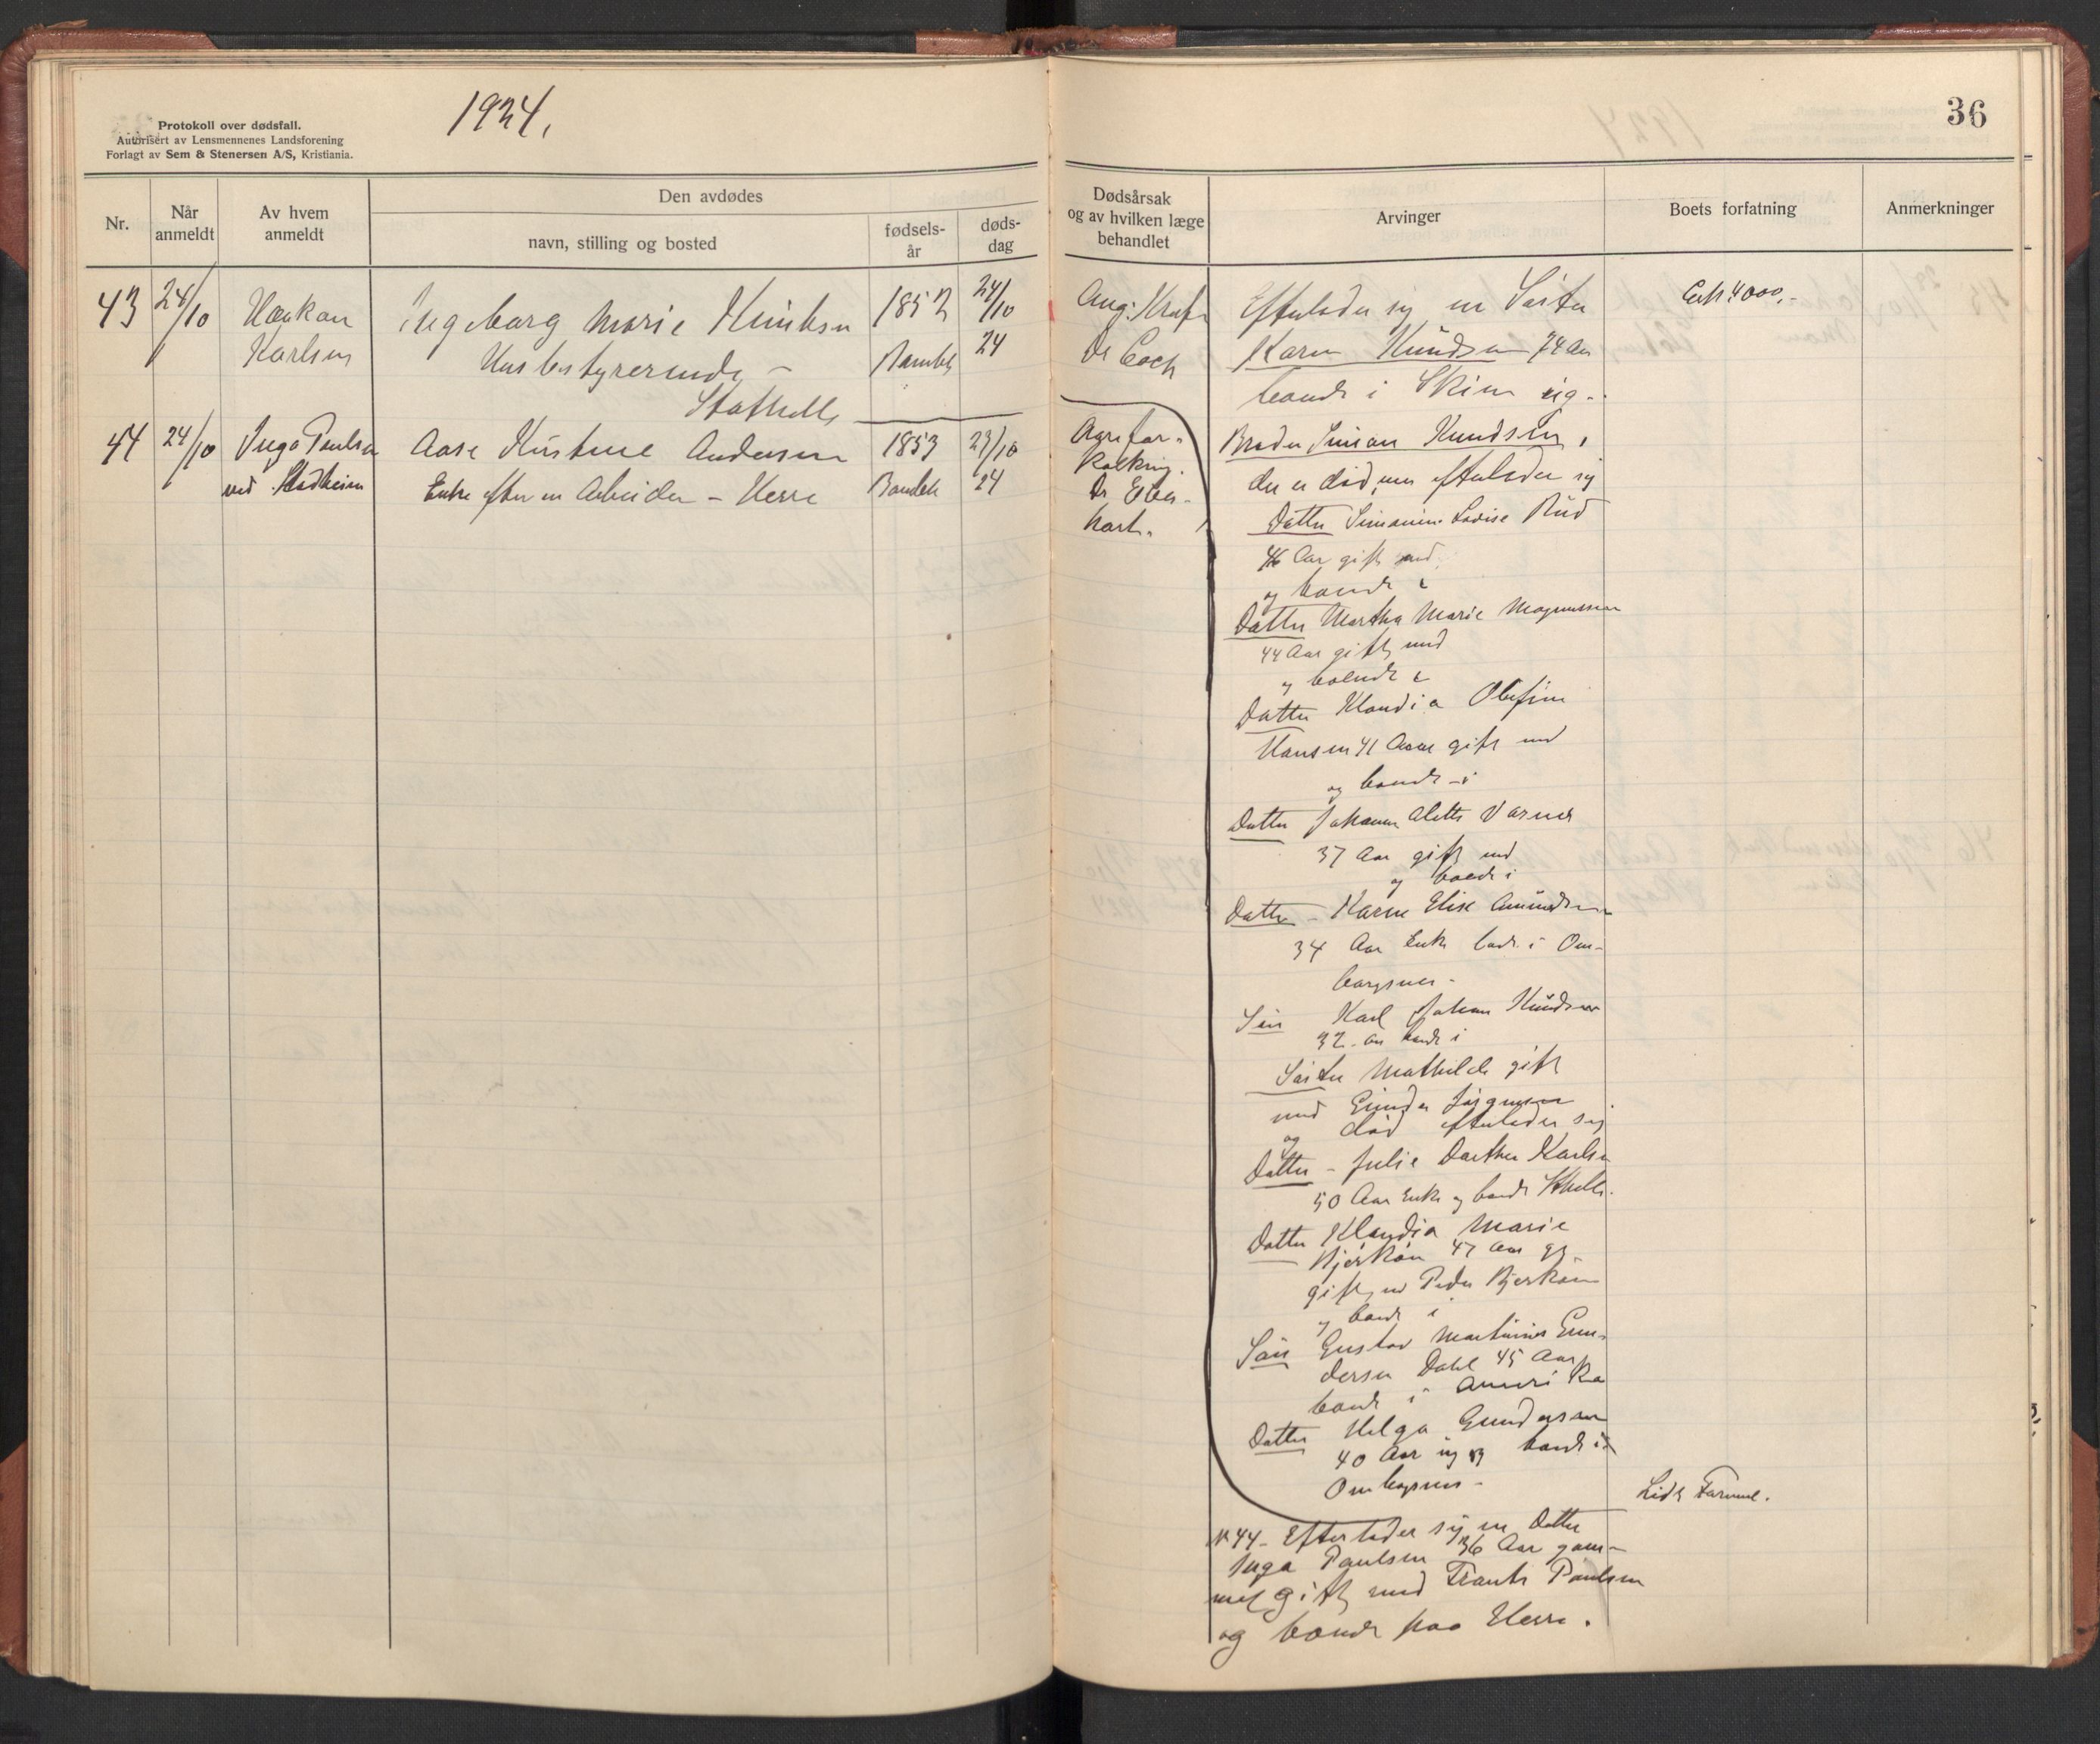 1924.
36
Protokoll over dødsfall.
Autorisert av Lensmennenes Landsforening
Forlagt av Sem & Stenersen A/S, Kristiania.
Nr.
Når anmeldt
Av hvem anmeldt
Den avdødes
navn, stilling og bosted
fødselsår
dødsdag
Dødsårsak
og av hvilken læge
behandlet
Arvinger
Boets forfatning
Anmerkninger
43 24/10 Haakon Ingeborg Marie Knudsen 1852 24/10
Karlsen Husbestyrerinde - Bamble 24
Stathelle
Dr Coch
Efterlader sig en Søster
Karen Knudsen 74 Aar
boende i Skien ug.
Ca kr 4000,-
44 24/10 Inga Paulsen Aase Kirstine Andersen 1853 23/10
ved Stadheim Enke efter en Arbeider - Herre Bamble 24
Aarefor-
kalkning.
Dr Eben-
hart.
Broder Simon Knudsen,
der er død, men efterlader sig
Datter Simonine Lovise Rud
46 Aar gift med
og boende i
Datter Martha Marie Magnussen
44 Aar gift med
og boende i
Datter Klaudia Olefine
Hansen 41 Aar gift med
og boende i
Datter Johanne Alette Varnes
37 Aar gift med
og boende i
Datter - Karen Elise Amundsen
34 Aar Enke boende i Om-
borgsnes -
Søn Karl Johan Knudsen
32 Aar boende i
Søster Mathilde gift
med Gunder Jørgensen
og død efterlader sig
Datter - Julie Dorthea Karlsen
50 Aar Enke og boende Sthelle.
Datter Klaudia Marie
Bjerkøen 47 Aar og
gift med Peder Bjerkøen
og boende i
Søn Gustav Martinius Gun-
dersen Dahl 45 Aar
boende i Amerika
Datter Helga Gundersen
40 Aar ug og boende i
Omborgsnes -
Nr 44 - Efterlader sig en Datter
Inga Paulsen 36 Aar gam-
mel gift med Frants Paulsen
og boende paa Herre.
Lidt Formue.